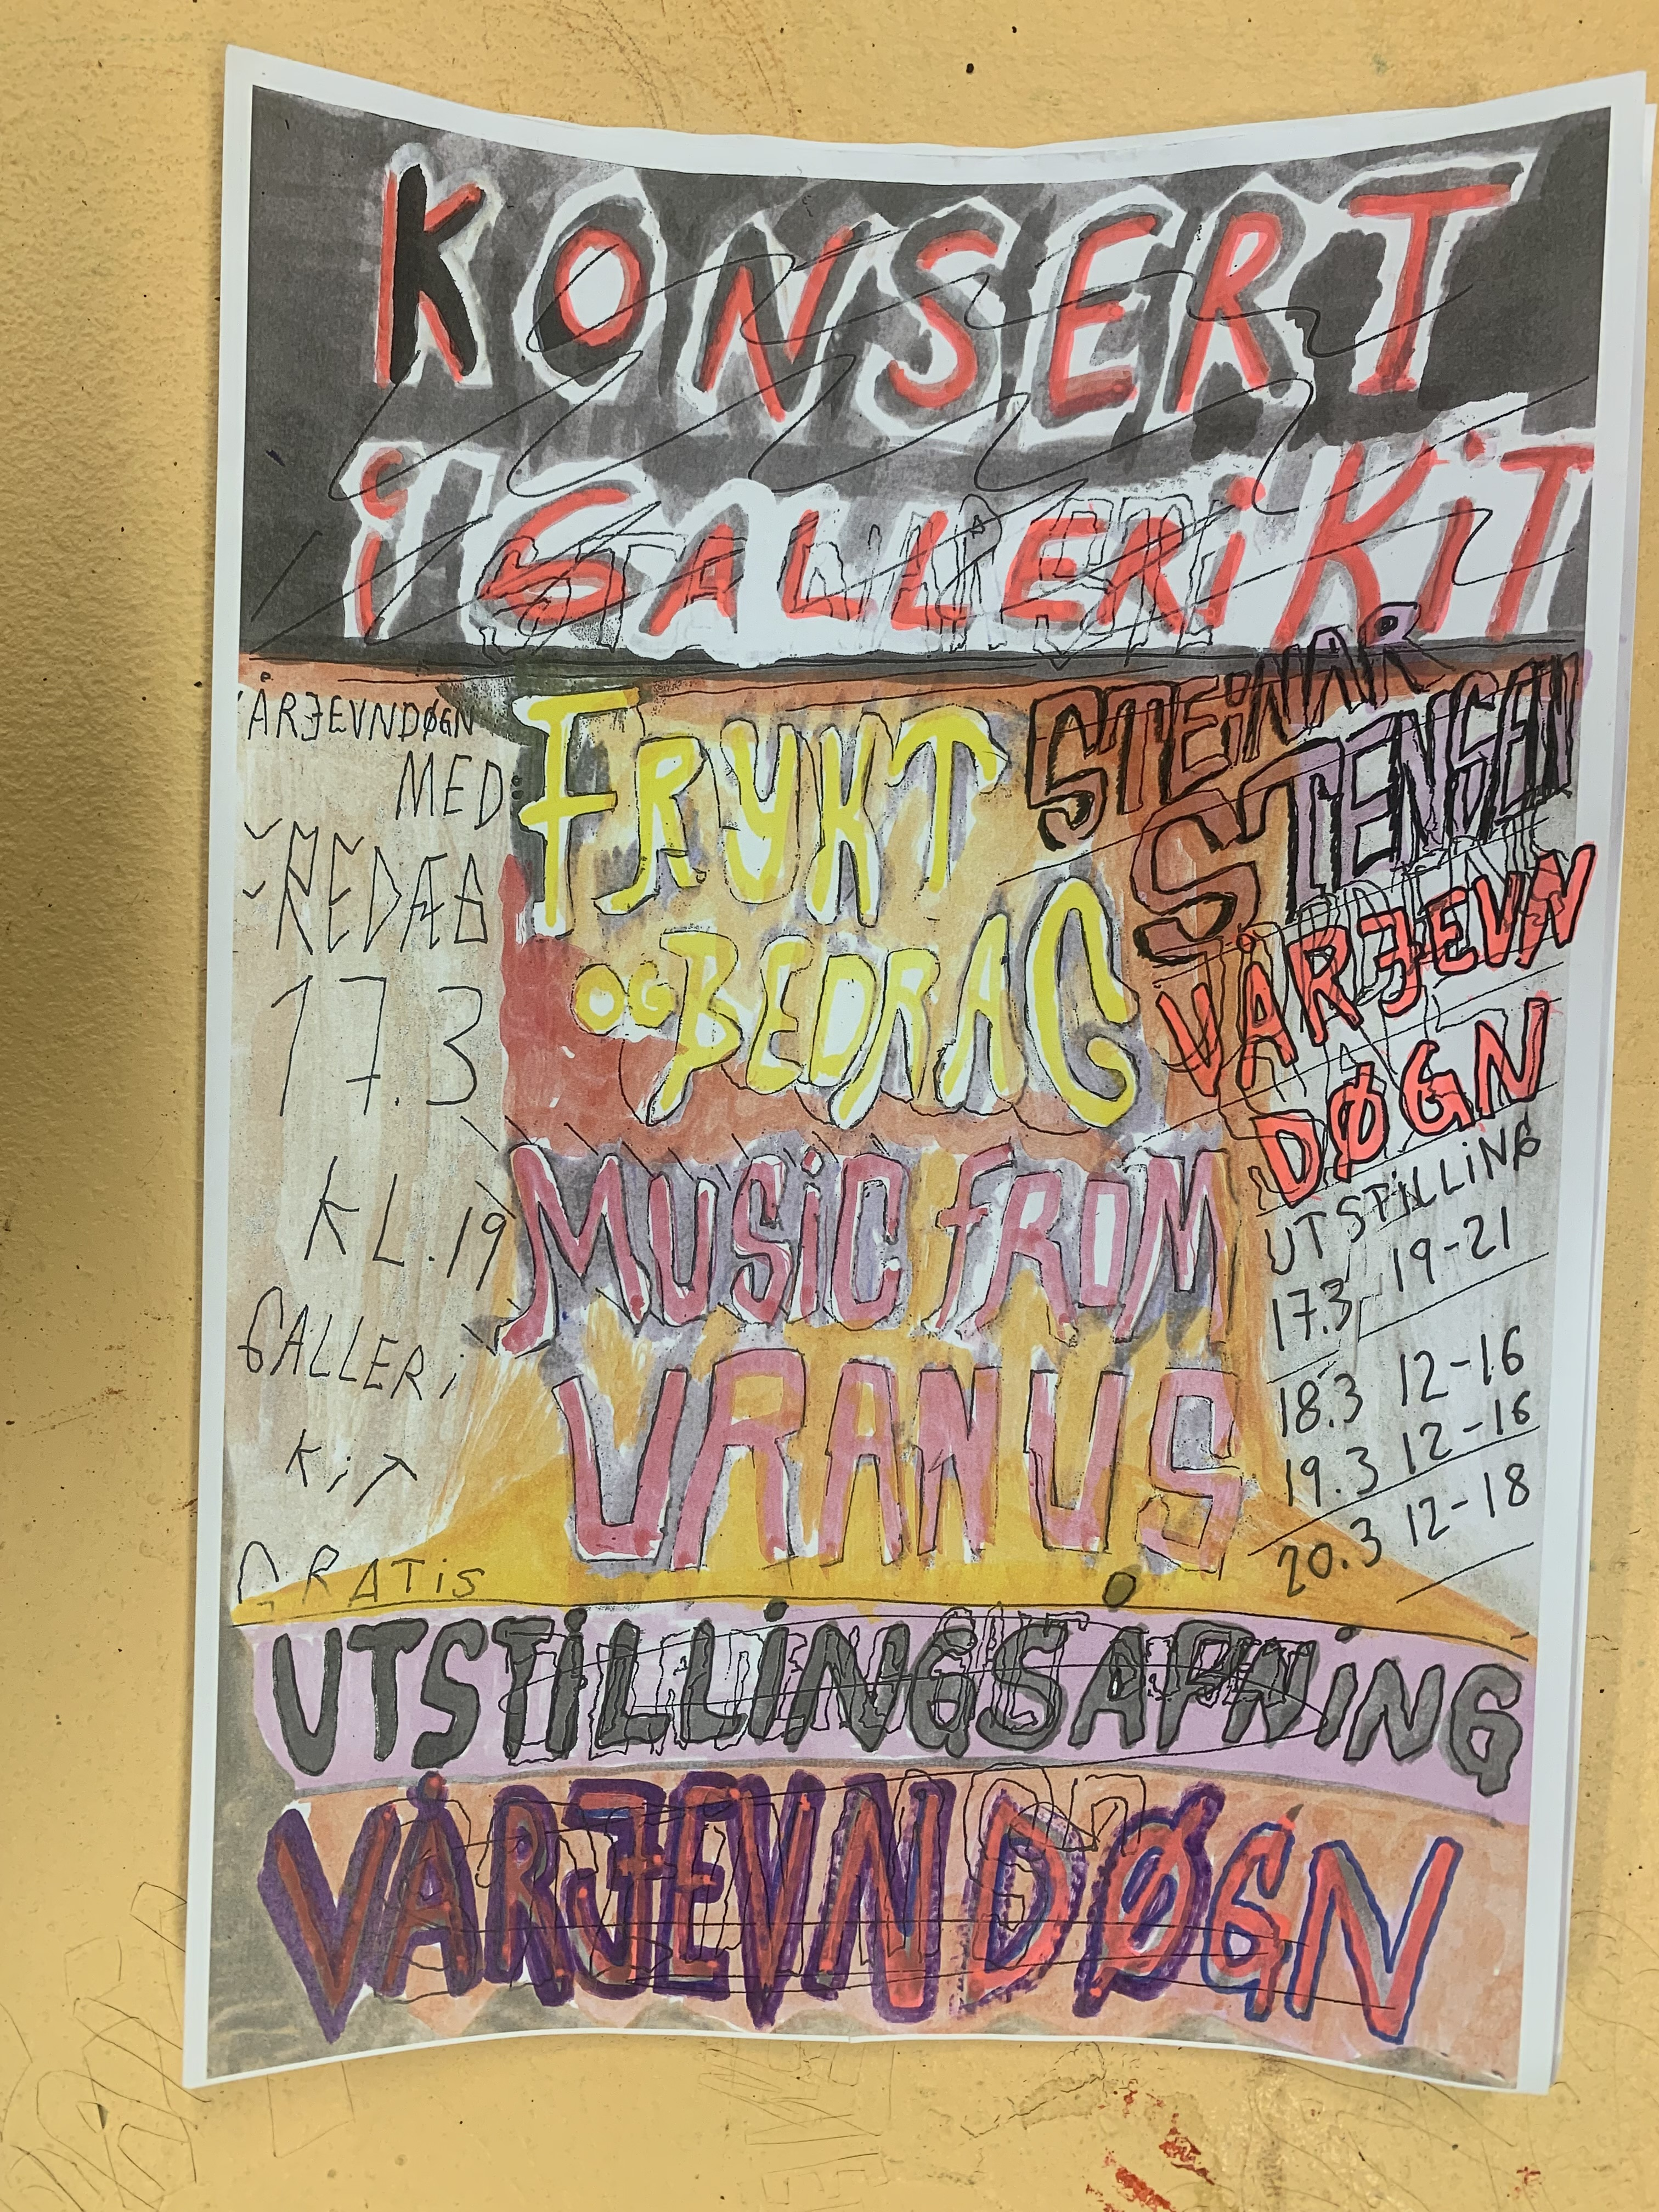 KONSERT
i GALLERi KiT
ÅRJEVNDØGN
MED
17.3
KL.19
GALLERi
KiT
GRATiS
FRYKT
OG BEDRAG
MUSiC FROM
URANUS
STEiNAR
STENSEN
VÅRJEVN
DØGN
UTSTiLLiNG
17.3 19-21
18.3 12-16
19.3 12-16
20.3 12-18
UTSTiLLiNGSÅPNiNG
VÅRJEVNDØGN